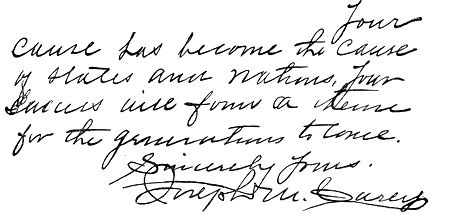 Your
cause has become the cause
of states and nations. Your
success will form a theme
for the generations to come.
Sincerely Yours.
Joseph M. Carey